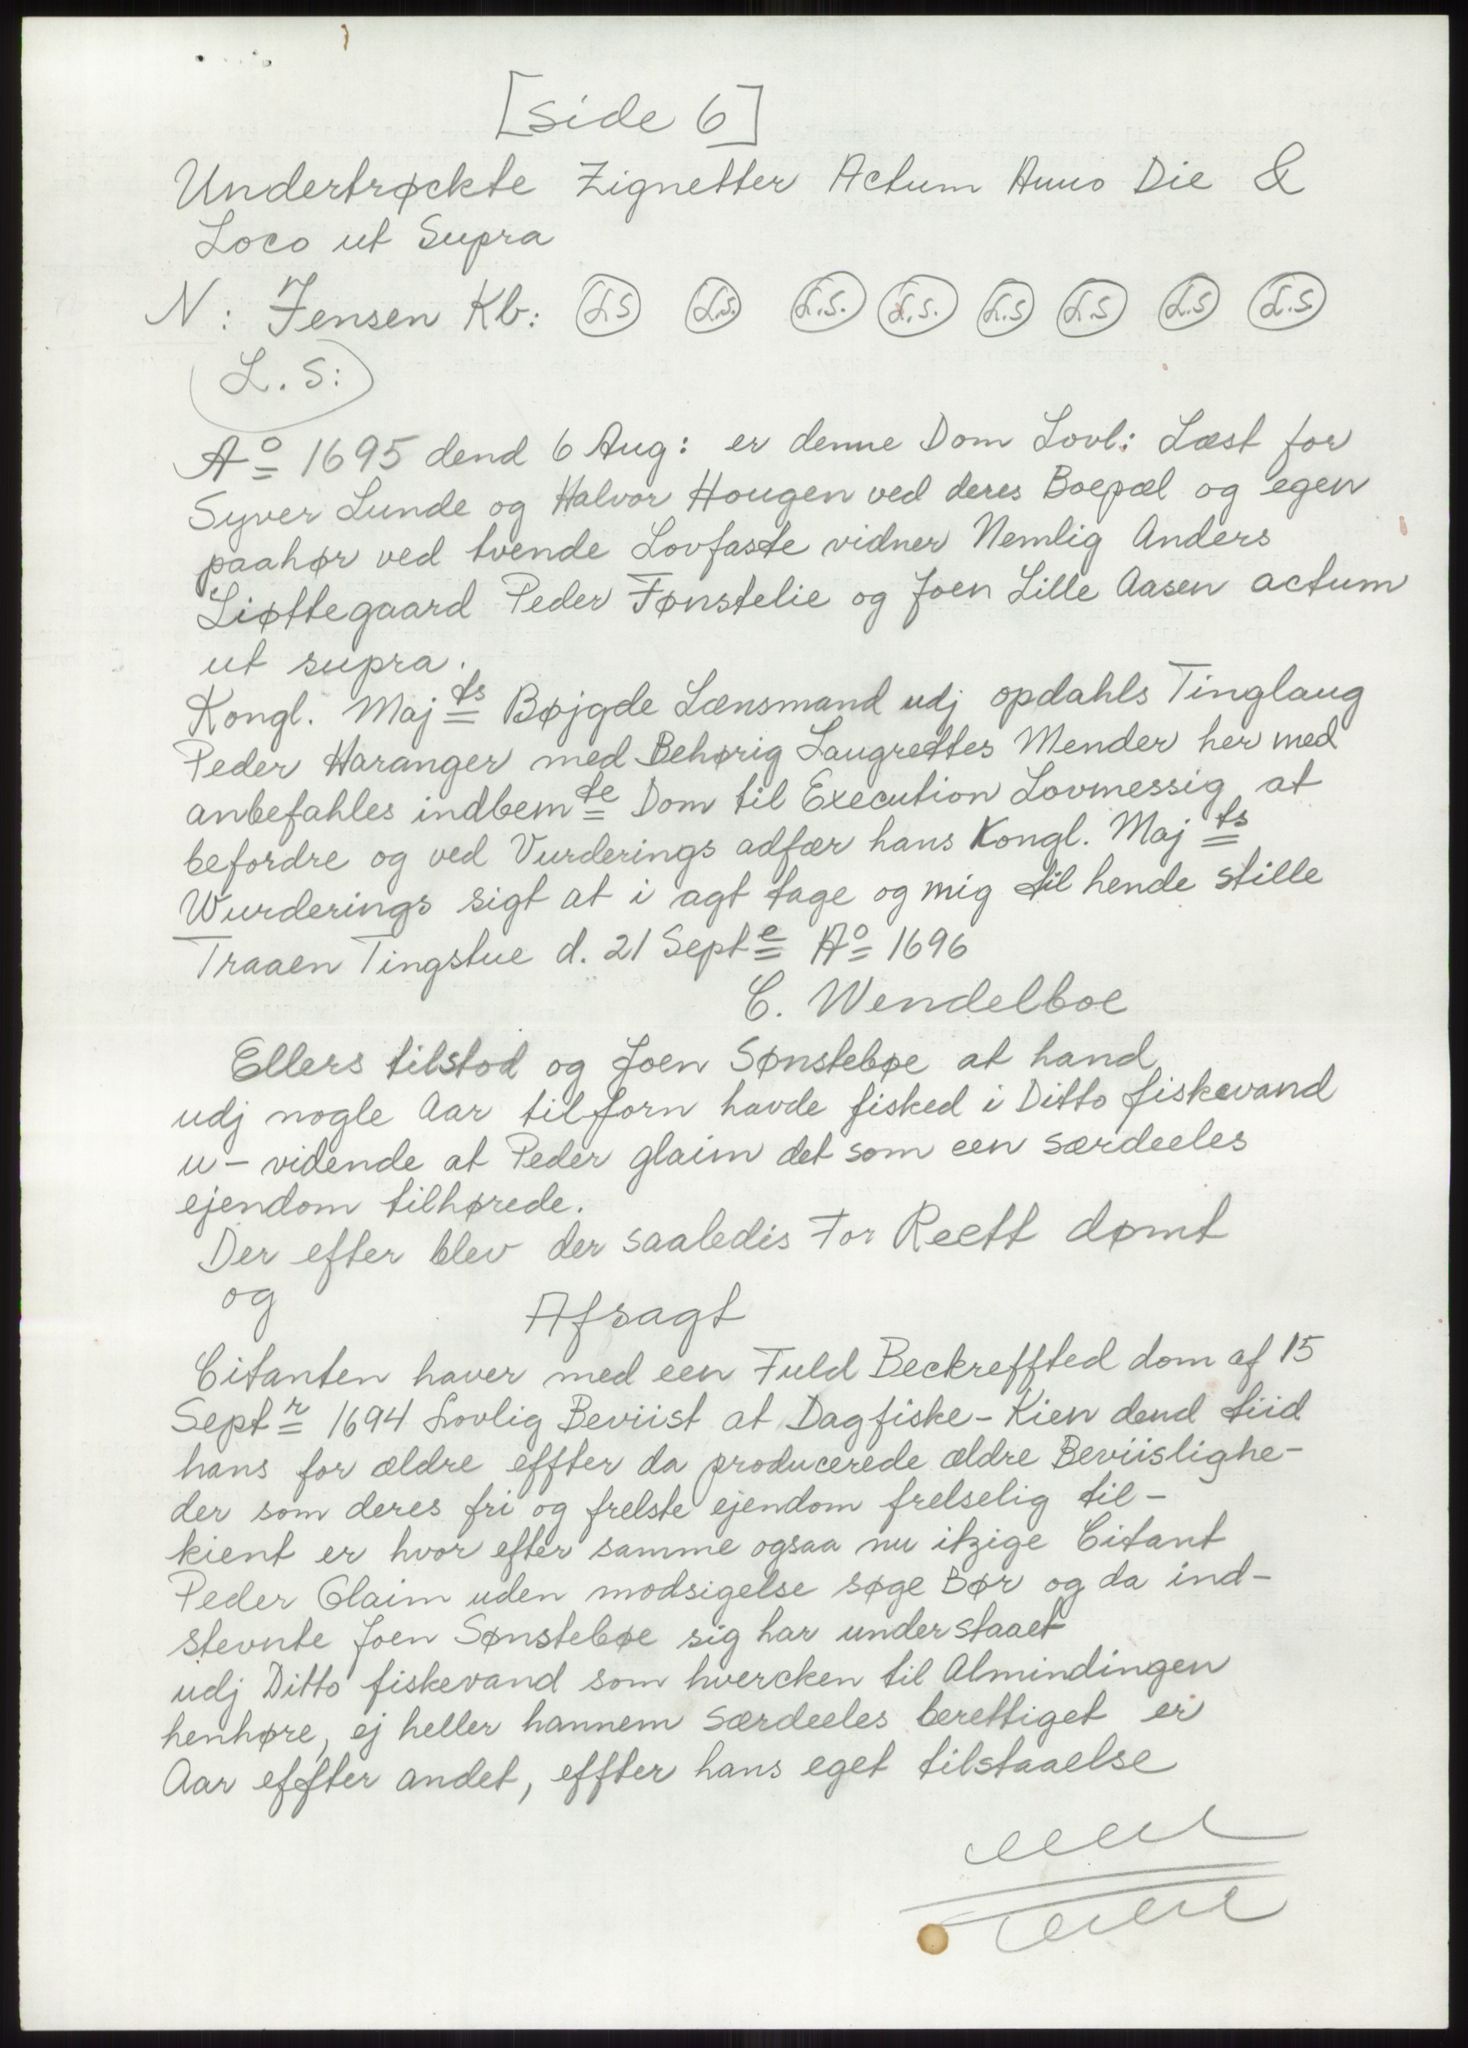 [Side 6]
Undertrøckte Zignetter Actum Anno Die &
Loco ut Supra
N: Jensen Kb: L.S L.S. L.S. L.S. L.S L.S L.S L.S
L.S:
Aº 1695 dend 6 Aug: er denne Dom Lovl: Læst for
Syver Lunde og Halvor Hougen ved deres Boepæl og egen
paahør ved tvende Lovfaste vidner Nemlig Anders
Liøttegaard Peder Fønstelie og Joen Lille Aasen actum
ut supra.
Kongl. Maj ts Bøjgde Lænsmand udj opdahls Tinglaug
Peder Haranger med Behørig Laugrettes Mender her med
anbefahles indbem te Dom til Execution Lovmessig at
befordre og ved Vurderings adfær hans Kongl. Maj ts
Wurderings sigt at i agt tage og mig til hende stille
Traaen Tingstue d. 21 Sept e Aº 1696
C. Wendelboe
Ellers tilstod og Joen Sønstebøe at hand
udj nogle Aar tilforn havde fisked i Ditto fiskevand
u-vidende at Peder glaim det som een særdeeles
ejendom tilhørede.
Der efter blev der saaledis For Reett dømt
og
Afsagt
Citanten haver med een Fuld Beckreffted dom af 15
Sept r 1694 Lovlig Beviist at Dagfiske-Kien dend tiid
hans for ældre effter da producerede ældre Beviislighe-
der som deres fri og frelste ejendom frelselig til-
kient er hvor efter samme ogsaa nu itzige Citant
Peder Glaim uden modsigelse søge Bør og da ind-
stevnte Joen Sønstebøe sig har under staaet
udj Ditto fiskevand som hvercken til Almindingen
henhøre, ej heller hannem særdeeles berettiget er
Aar effter andet, effter hans eget tilstaaelse